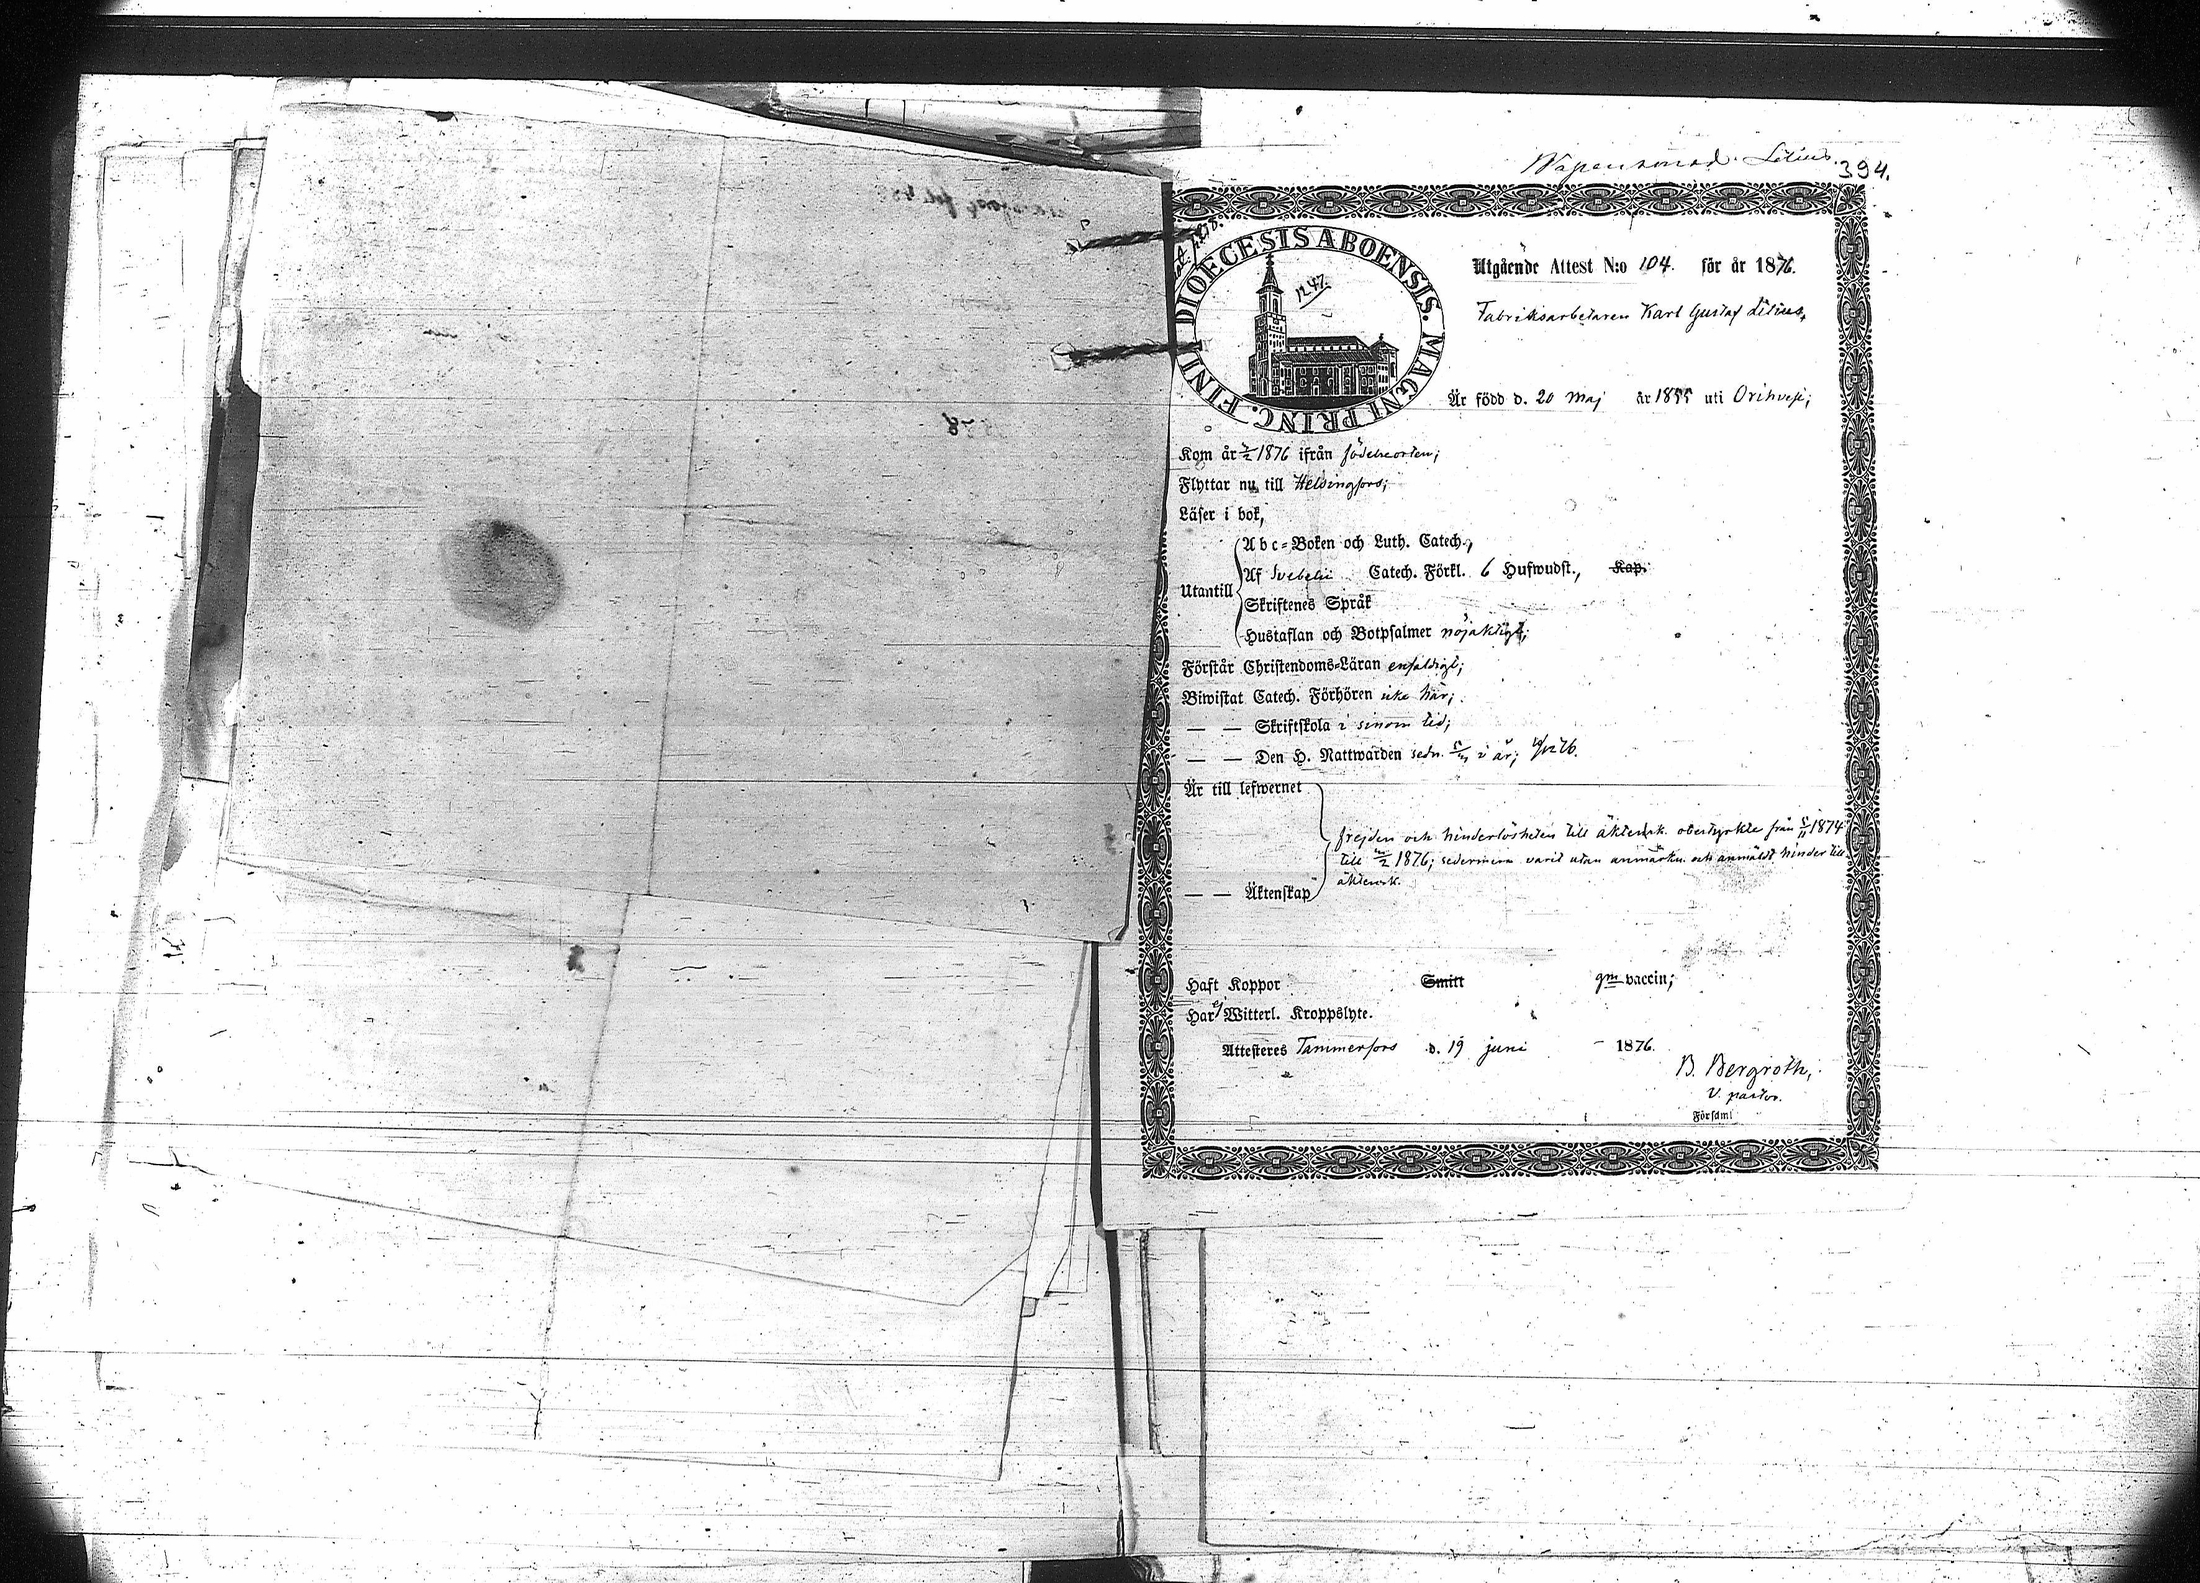 394.
DIOECESIS ABOENSIS. MAGNI PRINC. FINI
1247.
Utgående Attest N:o 104. för år 1876.
Fabriksarbetaren Karl Gustaf Lilius,
Är född d. 20 maj år 1855 uti Orihvesi;
Kom år 1876 ifrån födelseorten;
Flyttar nu till Helsingfors;
Läser i bok,
Utantill
Abc-Boken och Luth. Catech.,
Af Svebelii Catech. Förkl. 6 Hufwudst., Kap.
Skriftenes Språk
Hustaflan och Botpsalmer nöjaktigt;
Förstår Christendoms-Läran enfaldigt;
Biwistat Catech. Förhören icke här;
— — Skriftskola i sinom tid;
— — Den H. Nattwarden sedn. i år;
Är till lefwernet
frejden och hinderlösheten till äktensk. obestyrkte från 1874
till 1876; sedermera varit utan anmärkn. och anmäldt hinder till
äktensk.
— — Äktenskap
Haft Koppor Smitt gm vaccin;
Har ej Witterl. Kroppslyte.
Attesteres Tammerfors d. 19 juni 1876.
B. Bergroth,
V. pastor.
Församl